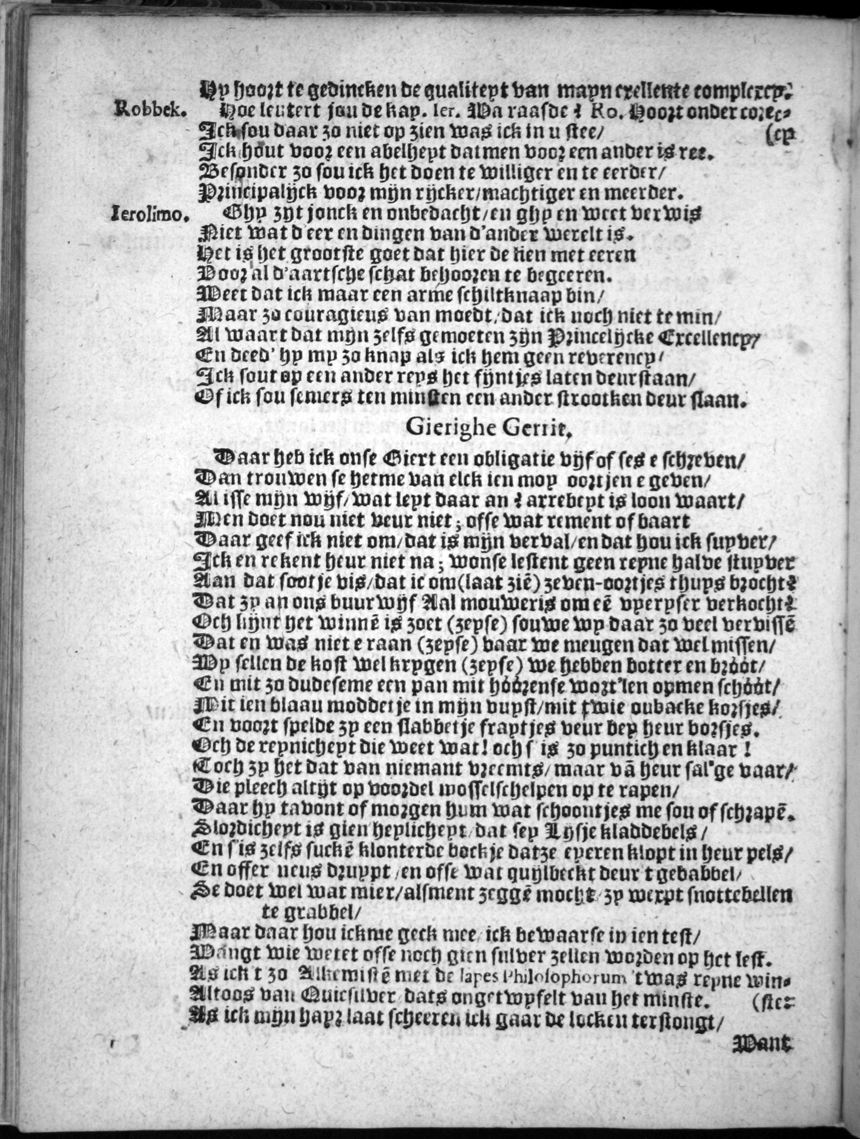 Hy hoort te gedincken de qualiteyt van mayn exellente complexcy.
Robbek. Hoe leutert jou de kap. Ier. Wa raasde ? Ro. Hoort onder corec-
Ick sou daar zo niet op zien was ick in u stee/ (cy
Ick hout voor een abelheyt datmen voor een ander is ree.
Besonder zo sou ick het doen te williger en te eerder/
Principalijck voor mijn rijcker/machtiger en meerder.
Ierolimo. Ghy zyt jonck en onbedacht/en ghy en weet verwis
Niet wat d'eer en dingen van d'ander werelt is.
Het is het grootste goet dat hier de lien met eeren
Voor al d'aartsche schat behooren te begeeren.
Weet dat ick maar een arme schiltknaap bin/
Maar zo couragieus van moedt/dat ick noch niet te min/
Al waart dat mijn zelfs gemoeten zijn Princelijcke Excellency/
En deed' hy my zo knap als ick hem geen reverency/
Ick sout op een ander reys het fijntjes laten deurstaan/
Of ick sou semers ten minsten een ander strootken deur slaan.
Gierighe Gerrit.
Daar heb ick onse Giert een obligatie vijf of ses e schreven/
Dan trouwen se hetme van elck ien moy oortjen e geven/
Al isse mijn wijf/wat leyt daar an ? arrebeyt is loon waart/
Men doet nou niet veur niet ; offe wat rement of baart
Daar geef ick niet om/dat is mijn verval/en dat hou ick suyver/
Ick en rekent heur niet na ; wonse lestent geen reyne halve stuyver
Aan dat sootje vis/dat ic om(laat ziē) zeven-oortjes thuys brocht?
Dat zy an ons buurwijf Aal mouweris om eē vyeryser verkocht?
Och kijnt het winnē is zoet (zeyse) souwe wy daar zo veel vervissē
Dat en was niet e raan (zeyse) vaar we meugen dat wel missen/
Wy sellen de kost wel krygen (zeyse) we hebben botter en bróót/
En mit zo dudeseme een pan mit hóórense wort'len op men schóót/
Mit ien blaau moddetje in mijn vuyst/mit twie oubacke korsjes/
En voort spelde zy een slabbetje fraytjes veur bey heur borsjes.
Och de reynicheyt die weet wat! och s' is zo puntich en klaar !
Toch zy het dat van niemant vreemts/maar vā heur sal'ge vaar/
Die pleech altijt op voordel mosselschelpen op te rapen/
Daar hy tavont of morgen hum wat schoontjes me sou of schrapē.
Slordicheyt is gien heylicheyt/dat sey Lysje kladdebels/
En s'is zelfs suckē klonterde bockje datze eyeren klopt in heur pels/
En offer neus druypt/en offe wat quijlbeckt deur 't gedabbel/
Se doet wel wat mier/alsment zeggē mocht/zy werpt snottebellen
te grabbel/
Maar daar hou ickme geck mee/ick bewaarse in ien test/
Wangt wie wetet offe noch gien silver zellen worden op het lest.
As ick 't zo Alkemistē met de lapes Philosophorum 't was reyne win-
Altoos van Quicsilver/dats ongetwyfelt van het minste. (ste:
As ick mijn hayr laat scheeren ick gaar de locken terstongt/
Want